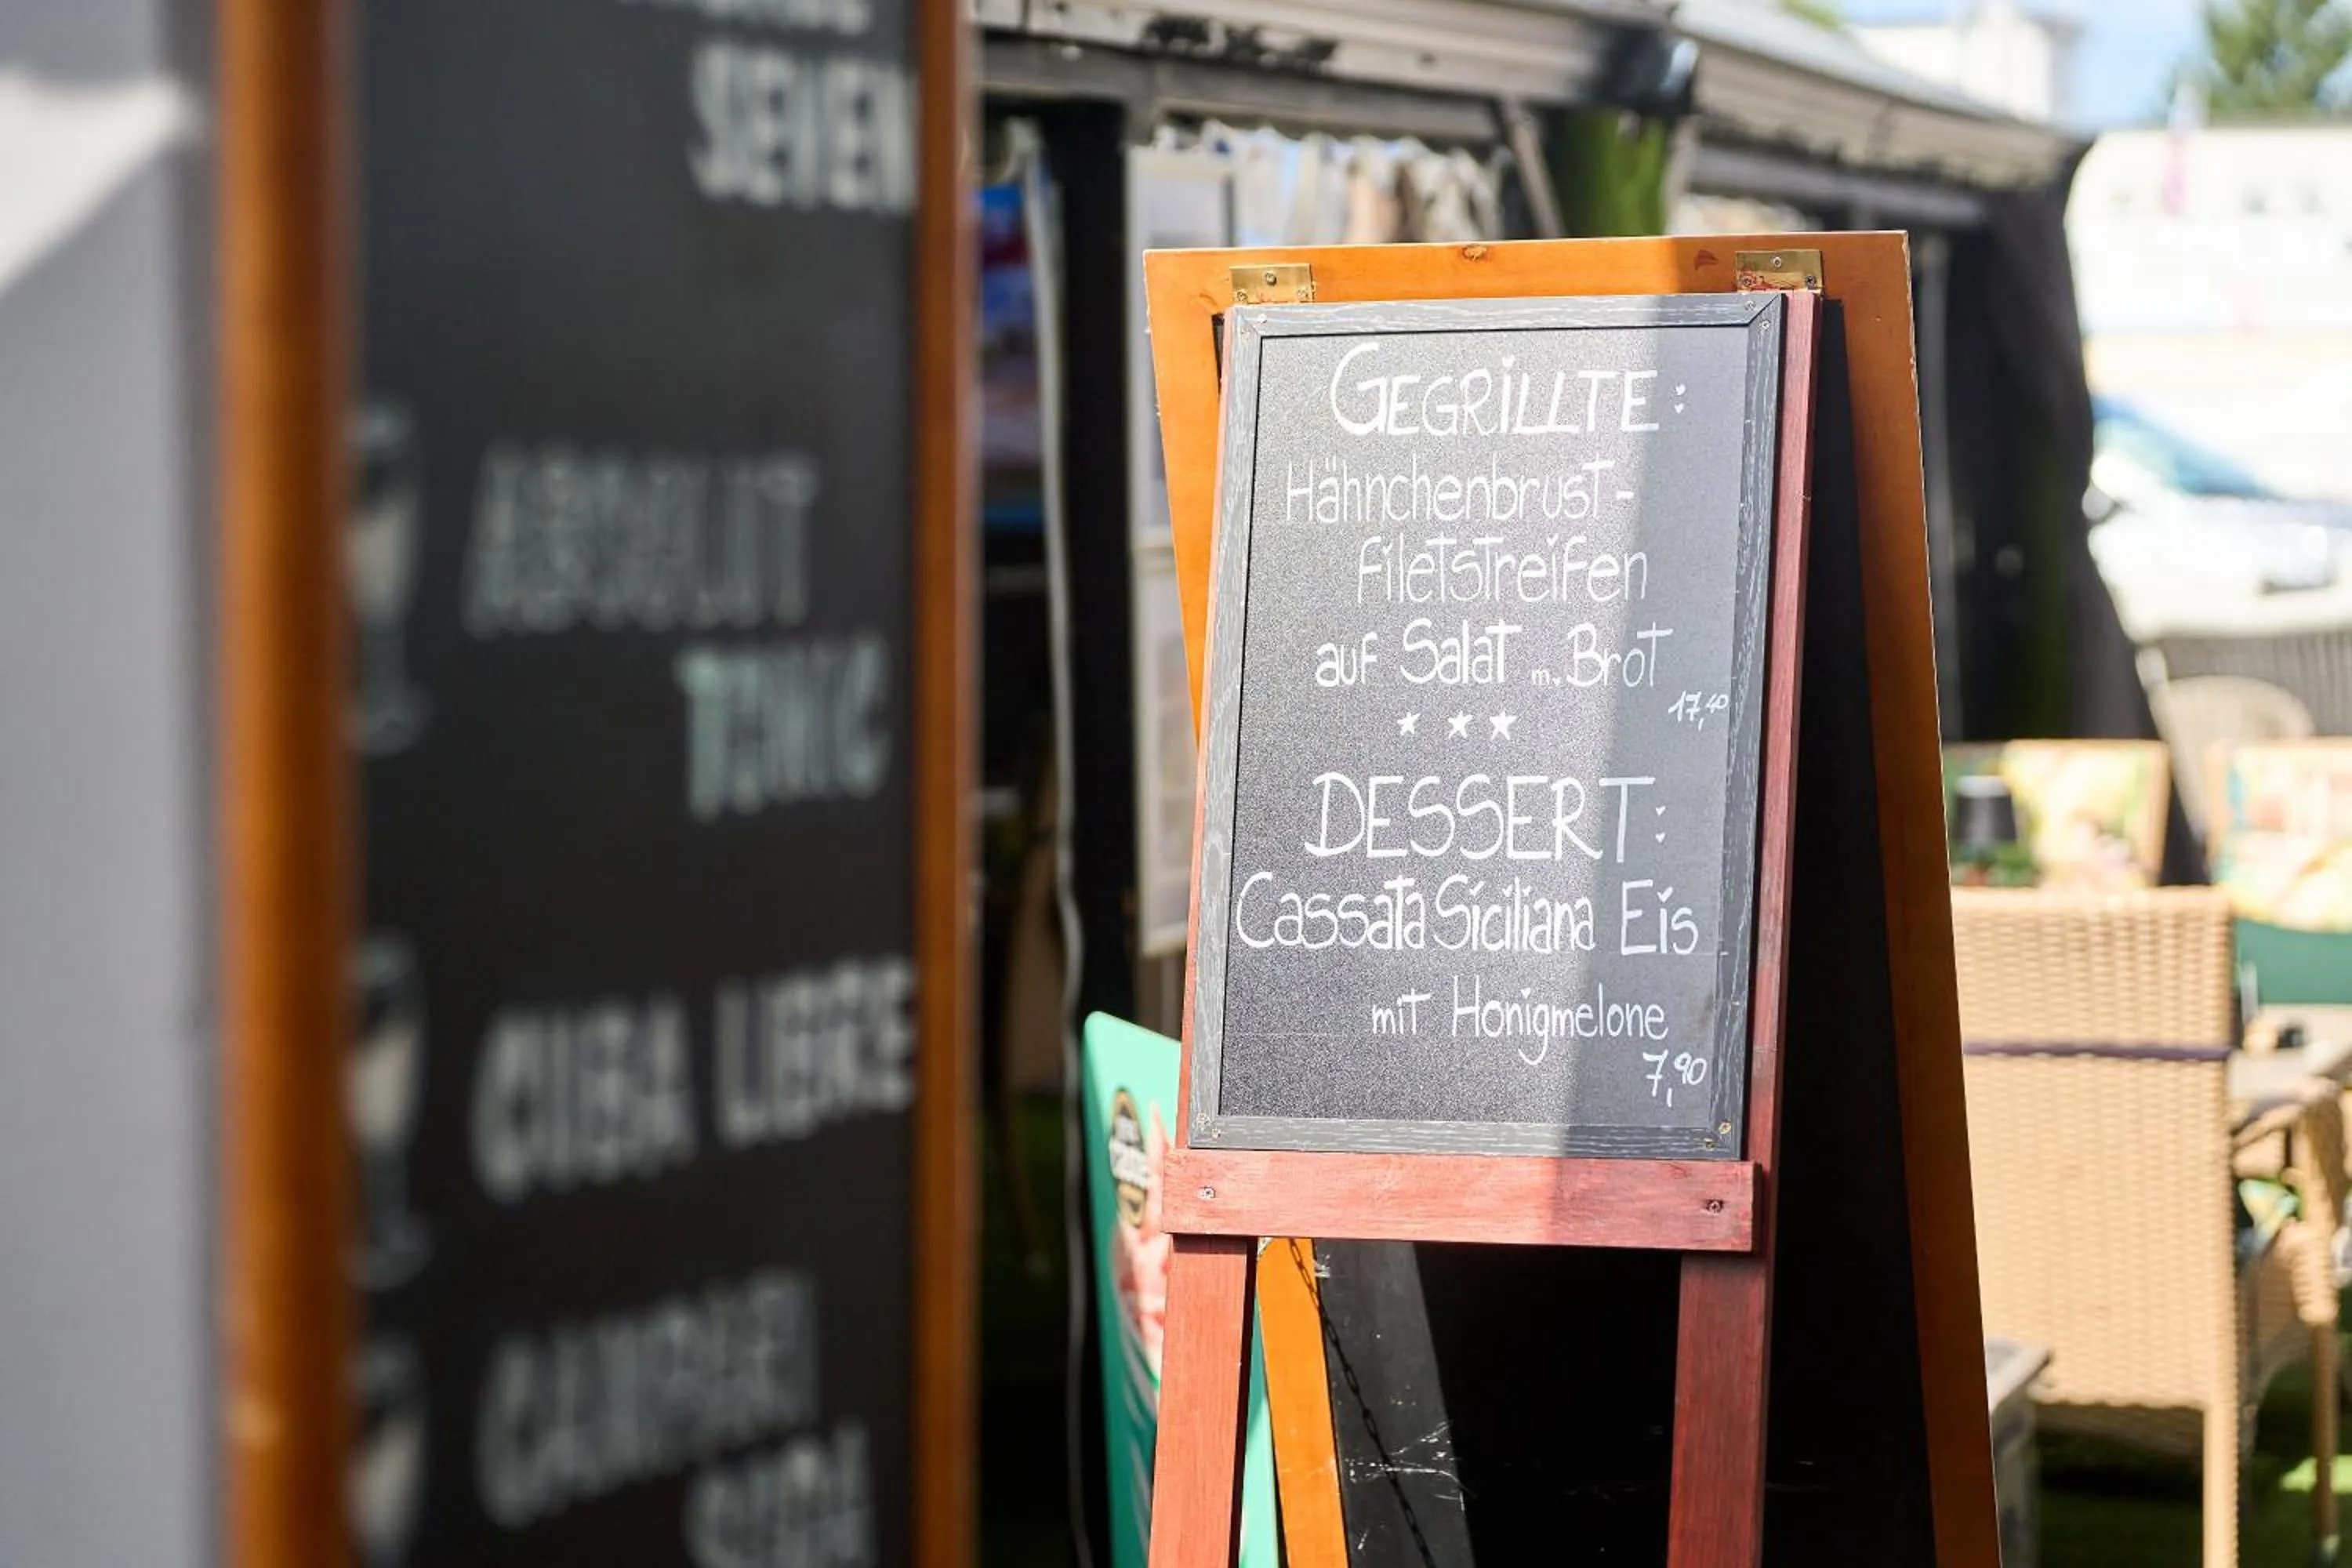 SEVEN
ABSOLUT
TONIC
CUBA LIBRE
CAMPARI
SODA
GEGRILLTE:
Hähnchenbrust-
filetstreifen
auf Salat m. Brot
17,40
DESSERT:
Cassata Siciliana Eis
mit Honigmelone
7,90